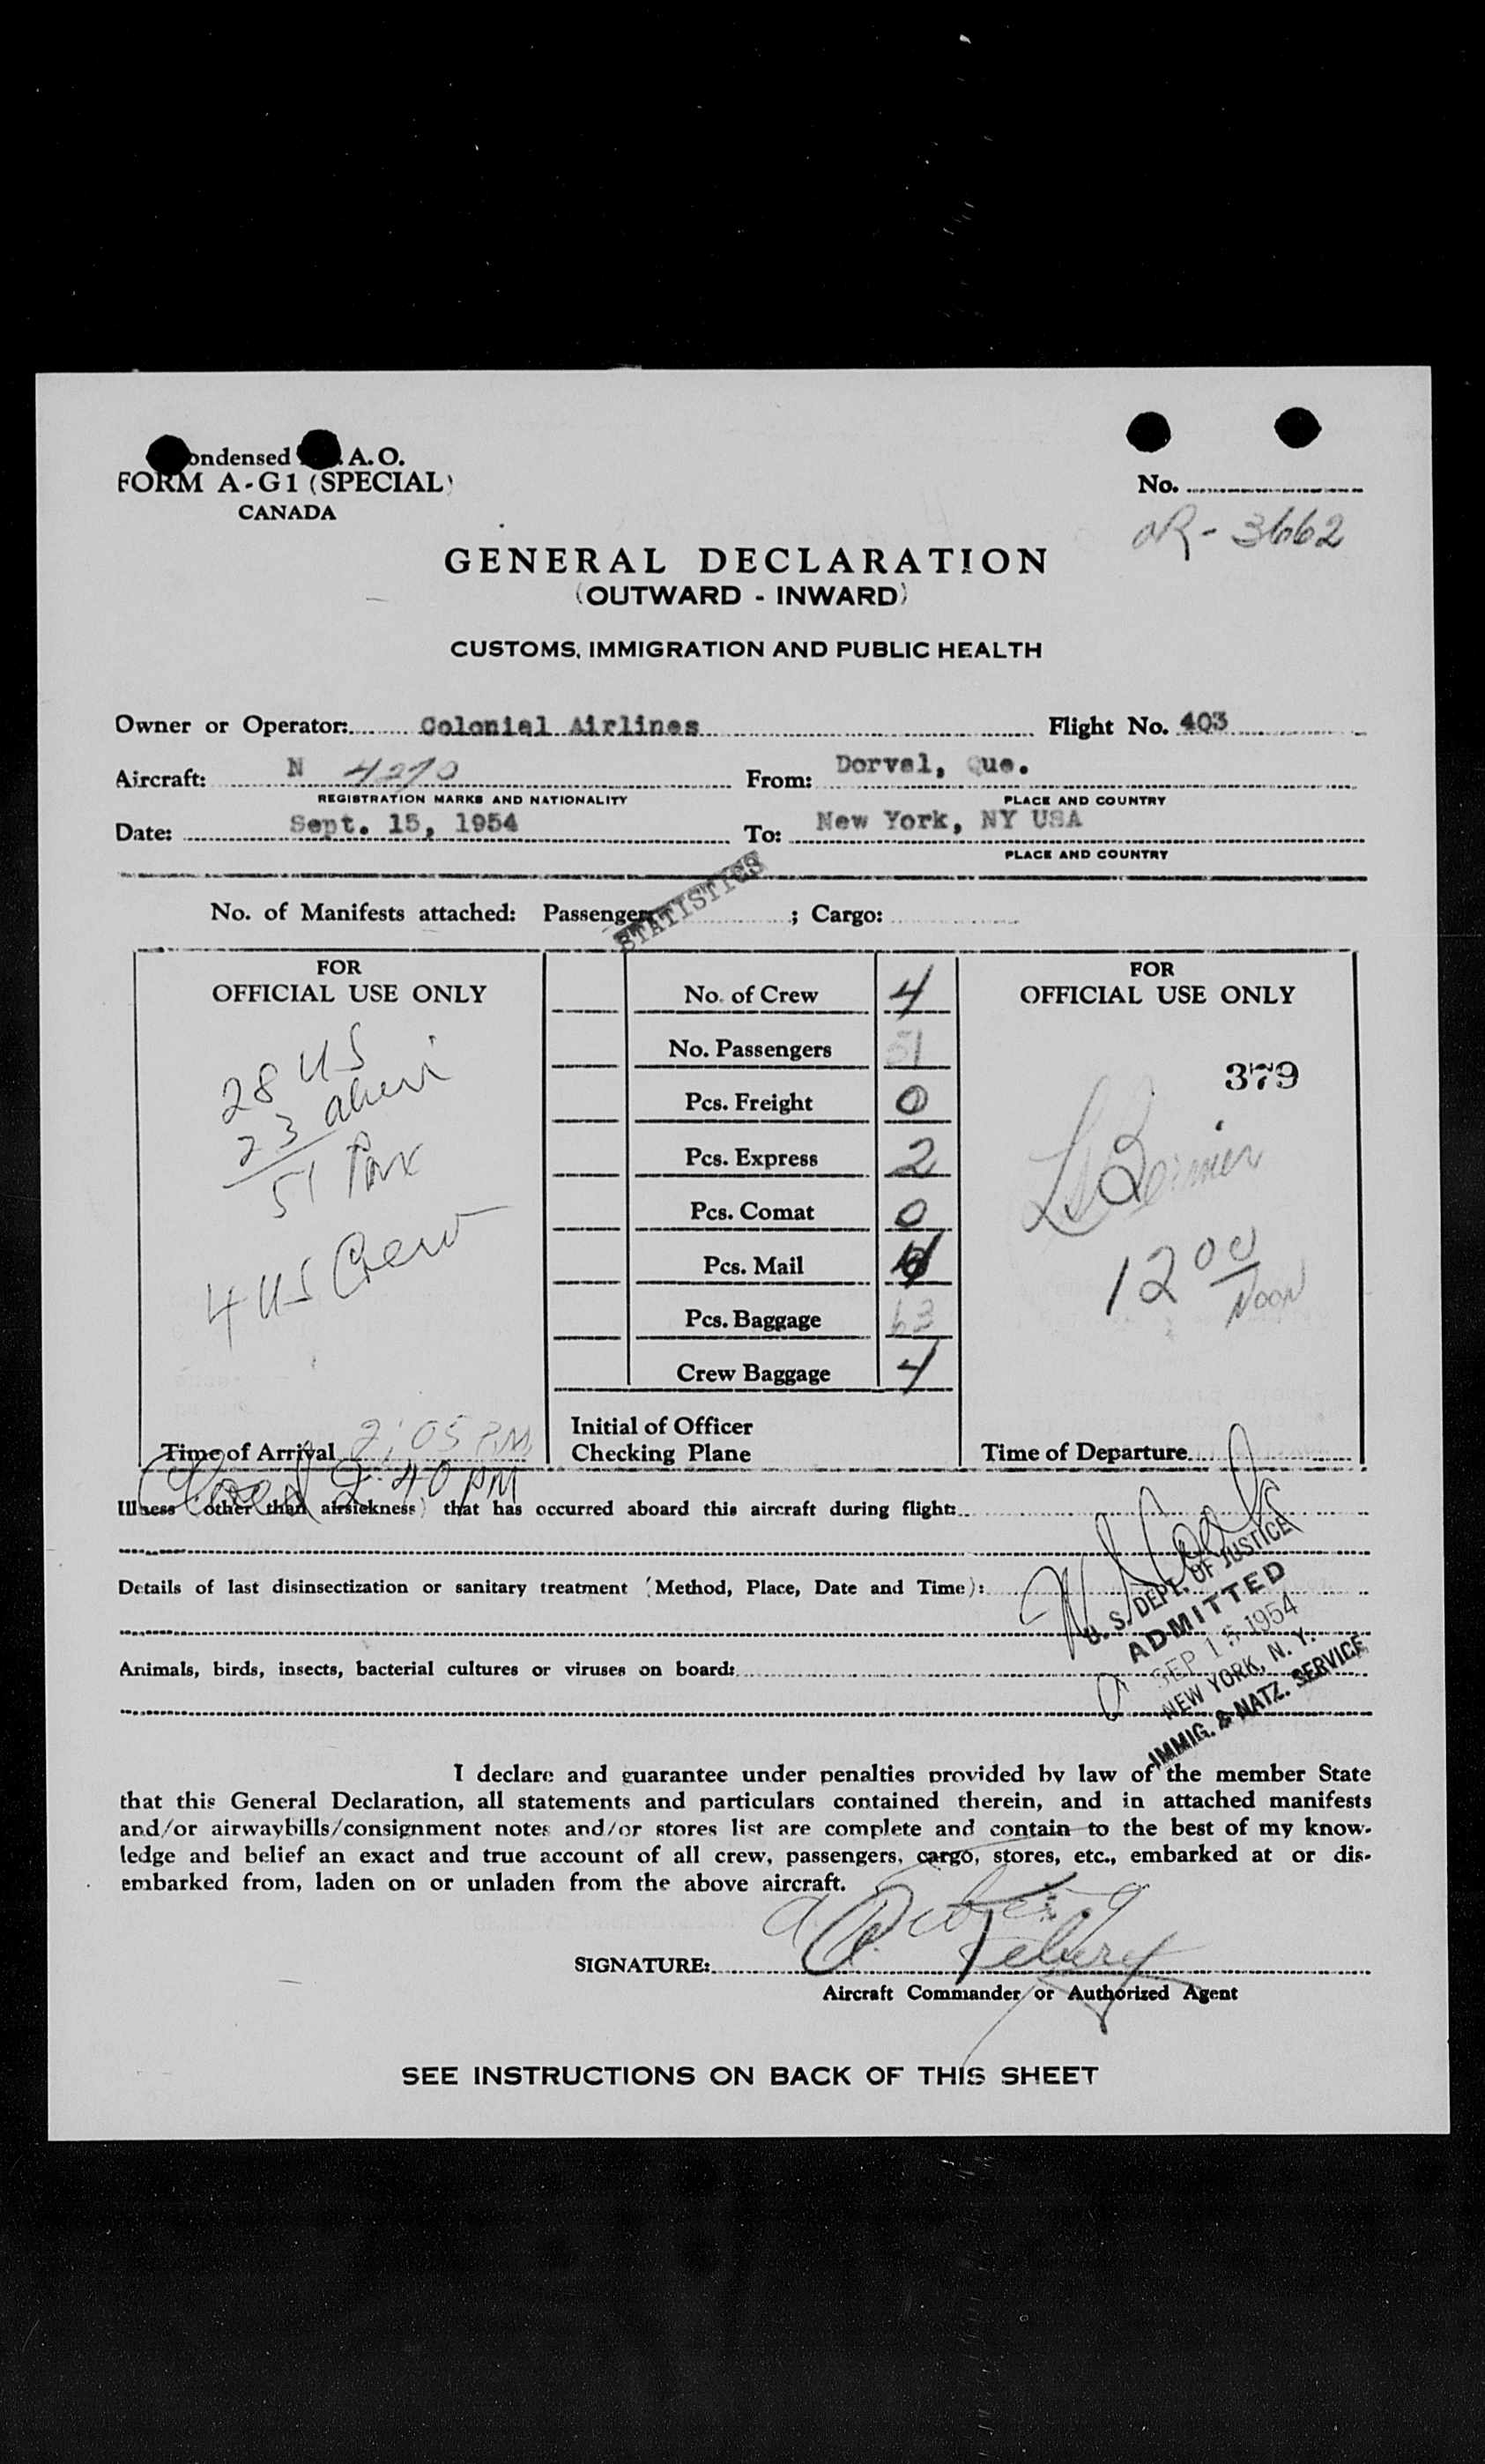 ondensed A. O.
FORM A-G1 (SPECIAL)
CANADA
No.
OR - 3662
GENERAL DECLARATION
(OUTWARD - INWARD)
CUSTOMS, IMMIGRATION AND PUBLIC HEALTH
Owner or Operator: Colonial Airlines Flight No. 403
Aircraft: N 4270 From: Dorval, Que.
REGISTRATION MARKS AND NATIONALITY PLACE AND COUNTRY
Date: Sept. 15, 1954 To: New York, NY USA
PLACE AND COUNTRY
STATISTICS
No. of Manifests attached: Passenger ; Cargo:
FOR
OFFICIAL USE ONLY
28 US
23 alien
51 Pax
4 US Crew
Time of Arrival 2:05 PM
Closed 2:40 PM
No. of Crew 4
No. Passengers 51
Pcs. Freight 0
Pcs. Express 2
Pcs. Comat 0
Pcs. Mail
Pcs. Baggage 63
Crew Baggage 4
Initial of Officer
Checking Plane
FOR
OFFICIAL USE ONLY
379
12 00
Noon
Time of Departure
Illness (other than airsickness) that has occurred aboard this aircraft during flight:
Details of last disinsectization or sanitary treatment (Method, Place, Date and Time):
Animals, birds, insects, bacterial cultures or viruses on board:
U. S. DEPT. OF JUSTICE
ADMITTED
SEP 15 1954
NEW YORK, N. Y.
IMMIG. & NATZ. SERVICE
I declare and guarantee under penalties provided by law of the member State
that this General Declaration, all statements and particulars contained therein, and in attached manifests
and/or airwaybills/consignment notes and/or stores list are complete and contain to the best of my know-
ledge and belief an exact and true account of all crew, passengers, cargo, stores, etc., embarked at or dis-
embarked from, laden on or unladen from the above aircraft.
SIGNATURE:
Aircraft Commander or Authorized Agent
SEE INSTRUCTIONS ON BACK OF THIS SHEET